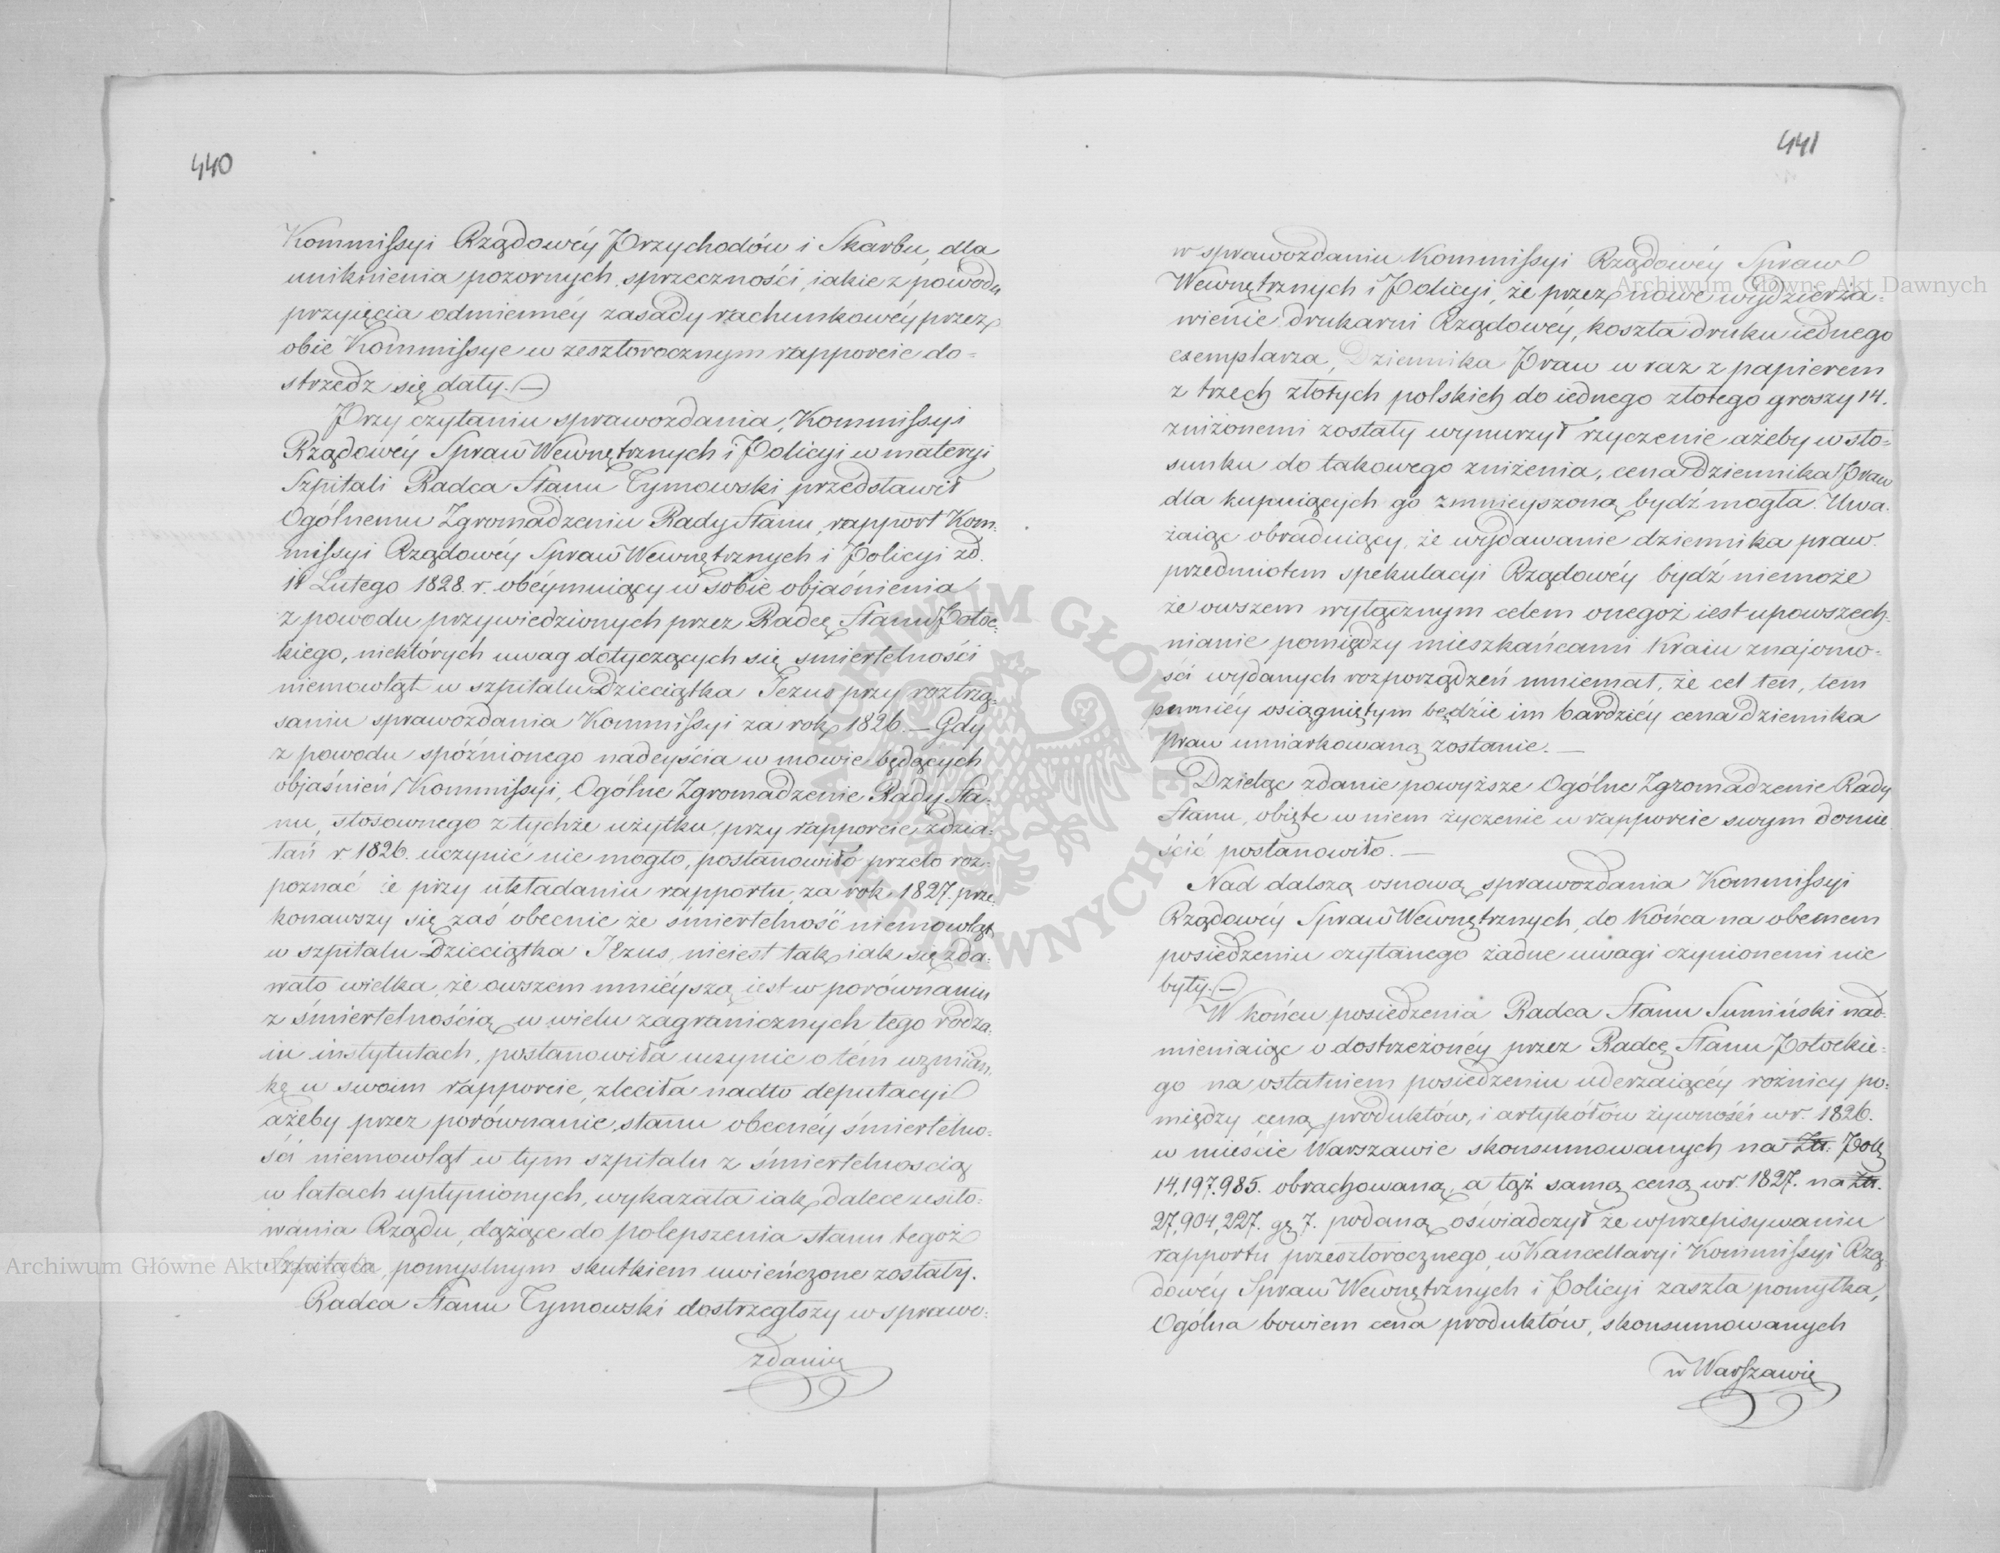 440
Kommissyi Rządowéy Przychodów i Skarbu, dla
uniknienia pozornych sprzeczności, iakie z powodu
przyięcia odmiennéy zasady rachunkowéy przez
obie Kommissye w zeszłorocznym rapporcie do-
strzedz się dały. (—)
Przy czytaniu sprawozdania, Kommissyi
Rządowéy Spraw Wewnętrznych i Policyi w materyi
Szpitali Radca Stanu Tymowski przedstawił
Ogólnemu Zgromadzeniu Rady Stanu, rapport Kom-
missyi Rządowéy Spraw Wewnętrznych i Policyi z d.
Lutego 1828. r. obéymuiący w sobie objaśnienia
z powodu przywiedzionych przez Radcę Stanu Potoc-
kiego, niektórych uwag dotyczących się smiertelności
niemowląt w szpitalu Dzieciątka Jezus przy roztrzą-
saniu sprawozdania Kommissyi za rok 1826. — Gdy
z powodu spóźnionego nadeyścia w mowie będących
objaśnień Kommissyi, Ogólne Zgromadzenie Rady Sta-
nu, stosownego z tychże użytku, przy rapporcie z dzia-
łań r. 1826. uczynić nie mogło, postanowiło przeto roz-
poznać że przy układaniu rapportu, za rok 1827. prze-
konawszy się zaś obecnie że smiertelność niemowląt
w szpitalu Dzieciątka Jezus, nieiest tak, iak się zda-
wało wielka, że owszem mnieysza iest w porównaniu
z śmiertelnością w wielu zagranicznych tego rodza-
iu instytutach, postanowiła uczynić o tém wzmian-
kę w swoim rapporcie, zleciła nadto deputacyi
ażeby przez porównanie, stanu obecnéy śmiertelno-
ści niemowląt w tym szpitalu z śmiertelnoscią
w latach upłynionych, wykazała iak, dalece usiło-
wania Rządu, dążące do polepszenia stanu tegoż
Szpitala, pomyslnym skutkiem uwieńczone zostały.
Radca Stanu Tymowski dostrzegłszy w sprawo-
zdaniu
441
w sprawozdaniu Kommissyi Rządowéy Spraw
Wewnętrznych i Policyi, że przez nowe wydzierża-
wienie drukarni Rządowéy, koszta druku iednego
exemplarza, Dziennika Praw wraz z papierem
z trzech złotych polskich do iednego złotego groszy 14.
zniżonemi zostały wynurzył rzyczenie ażeby w sto-
sunku do takowego zniżenia, cena Dziennika Praw
dla kupuiących go zmnieyszoną bydź mogła. Uwa-
żaiąc obraduiący, że wydawanie dziennika praw
przedmiotem spekulacyi Rządowéy bydź niemoże
że owszem wyłącznym celem onegoż iest upowszech-
nianie pomiędzy mieszkańcami Kraiu znajomo-
ści wydanych rozporządzeń mniemał, że cel ten, tem
pewniéy osiągniętym będzie im bardziéy cena dziennika
praw umiarkowaną zostanie. —
Dzieląc zdanie powyższe Ogólne Zgromadzenie Rady
Stanu, obięte w niem życzenie w rapporcie swym domie
ścić postanowiło. —
Nad dalszą osnową sprawozdania Kommissyi
Rządowéy Spraw Wewnętrznych, do Końca na obecnem
posiedzeniu czytanego żadne uwagi czynionemi nie
były. (—)
W końcu posiedzenia Radca Stanu Sumiński nad-
mieniaiąc o dostrzeżonéy przez Radcę Stanu Potockie-
go na ostatniem posiedzeniu uderzaiącéy rożnicy po-
między ceną produktów, i artykółów żywności w r. 1826.
w mieście Warszawie skonsumowanych na Złr.
14,197.985. obrachowaną, a tąż samą ceną w r. 1827. na Złr.
27,904,227. gę 7. podaną oświadczył że w przepisywaniu
rapportu przeszłorocznego, w Kancellaryi Kommissyi Rzą-
dowéy Spraw Wewnętrznych i Policyi zaszła pomyłka,
Ogólna bowiem cena produktów, skonsumowanych
w Warszawie
Archiwum Główne Akt Dawnych
Archiwum Główne Akt Dawnych
ARCHIWUM GŁÓWNE AKT DAWNYCH